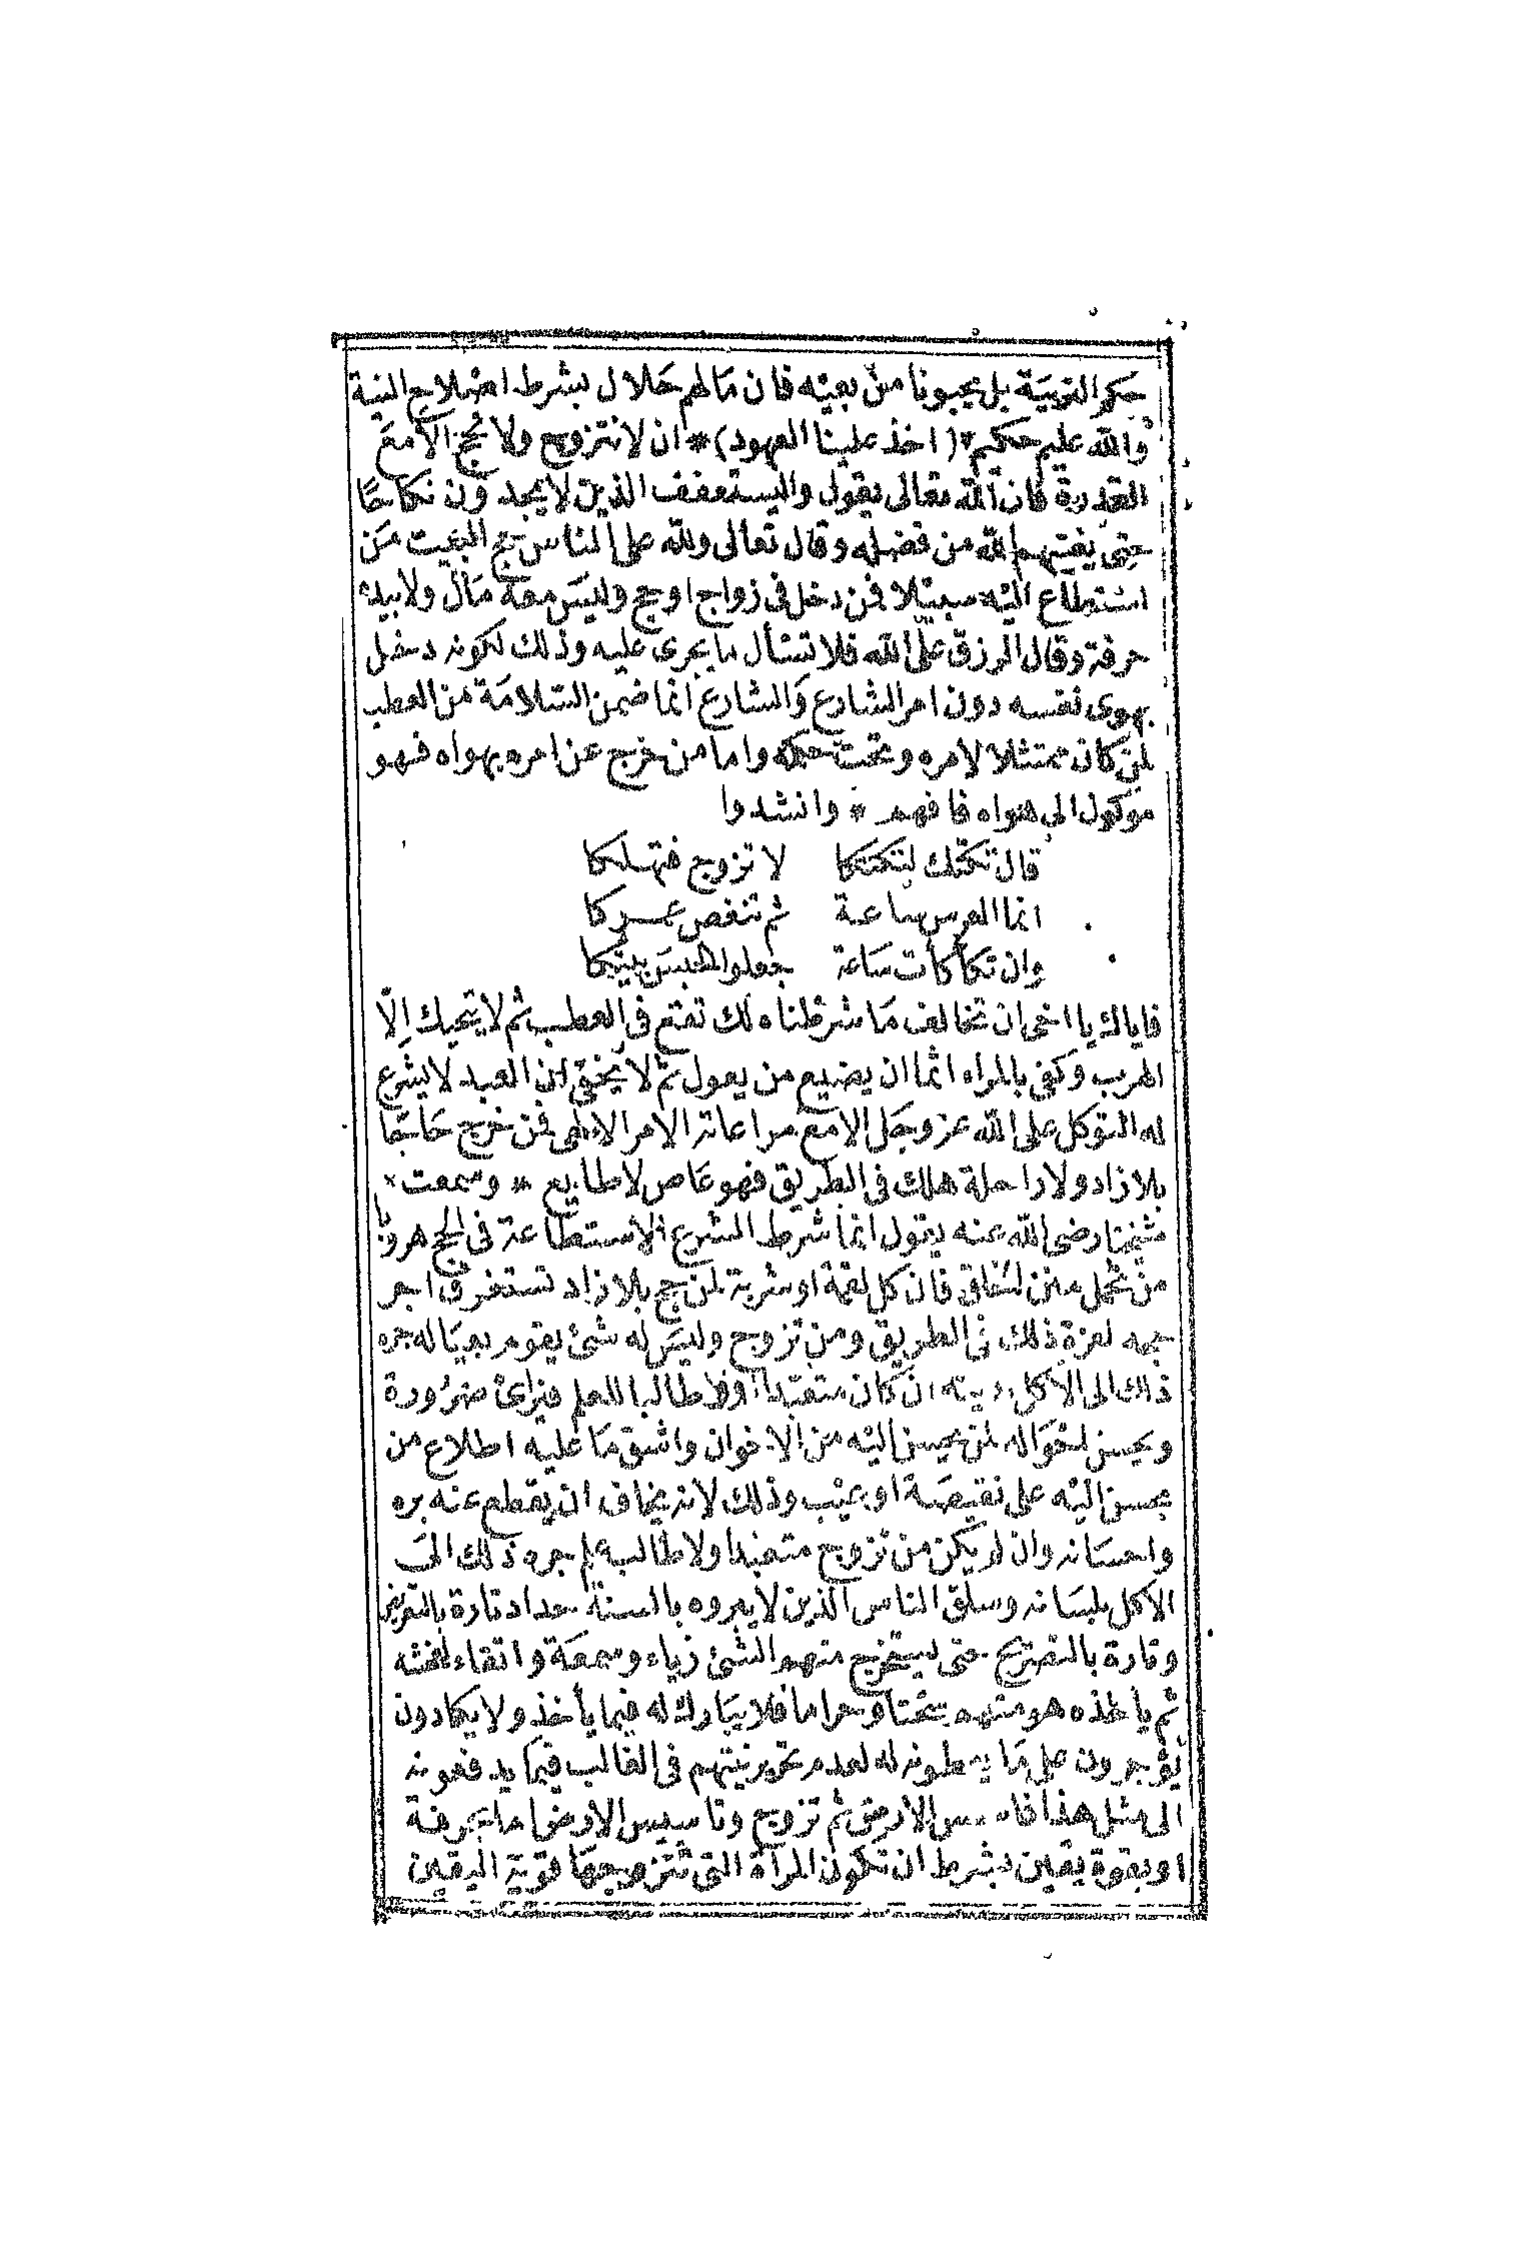 حكم التربية بل يحبونا من بعيه فان مالهم حلال بشرط اصلاح النية
والله عليم حكيم * (اخذ علينا العهود) * ان لا نتزوج ولا نحج الا مع
القدرة فان الله تعالى يقول وليستعفف الذين لا يجدون نكاحا
حتى يغنيهم الله من فضله وقال تعالى ولله على الناس حج البيت من
استطاع اليه سبيلا فمن دخل فى زواج اوحج وليس معه مال ولا بيده
حرفة وقال الرزق على الله فلا تسأل ما يجرى عليه وذلك لكونه دخل
بهوى نفسه دون امر الشارع والشارع انما ضمن السلامة من العطب
لمن كان ممتثلا لامره وتحت حكمه واما من خرج عن امره بهواه فهو
موكول الى هواه فافهم * وانشدوا
قال لا تزوج فتهلكا
انما العرس ساعة ثم تنغص عمركا
وان ساعة جعلوا الحبس بيتكا
فاياك يا اخى ان تخالف ما شرطناه لك تقع فى العطب ثم لا ينجيك الّا
الهرب وكفى بالمراء اثما ان يضيع من يعول ثم لا يخفى ان العبد لا يشرع
له التوكل على الله عز وجل الا مع مراعاته الامر الالهى فمن خرج حاجا
بلا زاد ولا راحلة هلك فى الطريق فهو عاص لا طايع * وسمعت
شيخنا رضى الله عنه يقول انما شرط الشرع الاستطاعة فى الحج هروبا
من تحمل منن الخلق فان كل لقمة او شربة لمن حج بلا زاد تستغرق اجر
حجه لعزة ذلك فى الطريق ومن تزوج وليس له شئ يقوم بعياله جره
ذلك الى الاكل بدينه ان كان متعبدا او طالبا للعلم فيرائ ضرورة
ويحسن احواله لمن يحسن اليه من الاخوان واشق ما عليه اطلاع من
يحسن اليه على نقيصة او عيب وذلك لانه يخاف ان يقطع عنه بره
واحسانه وان لم يكن من تزوج متعبدا ولا طالب علم جره ذلك الى
الاكل بلسانه وسلق الناس الذين لا يبروه بالسنة حداد تارة بالتعريض
وتارة بالتصريح حتى يستخرج منهم الشئ رياء وسمعة واتقاء لفحشه
ثم ياخذه هو منهم سحتا وحراما فلا يبارك له فيما يأخذ ولا يكادون
يؤجرون على ما يعطونه له لعدم تحرير نيتهم فى الغالب فيما يدفعونه
الى مثل هذا الارض ثم تزوج وتاسيس الارض اما بحرفة
او بقوة يقين بشرط ان تكون المرأة التى تتزوجها قوية اليقين